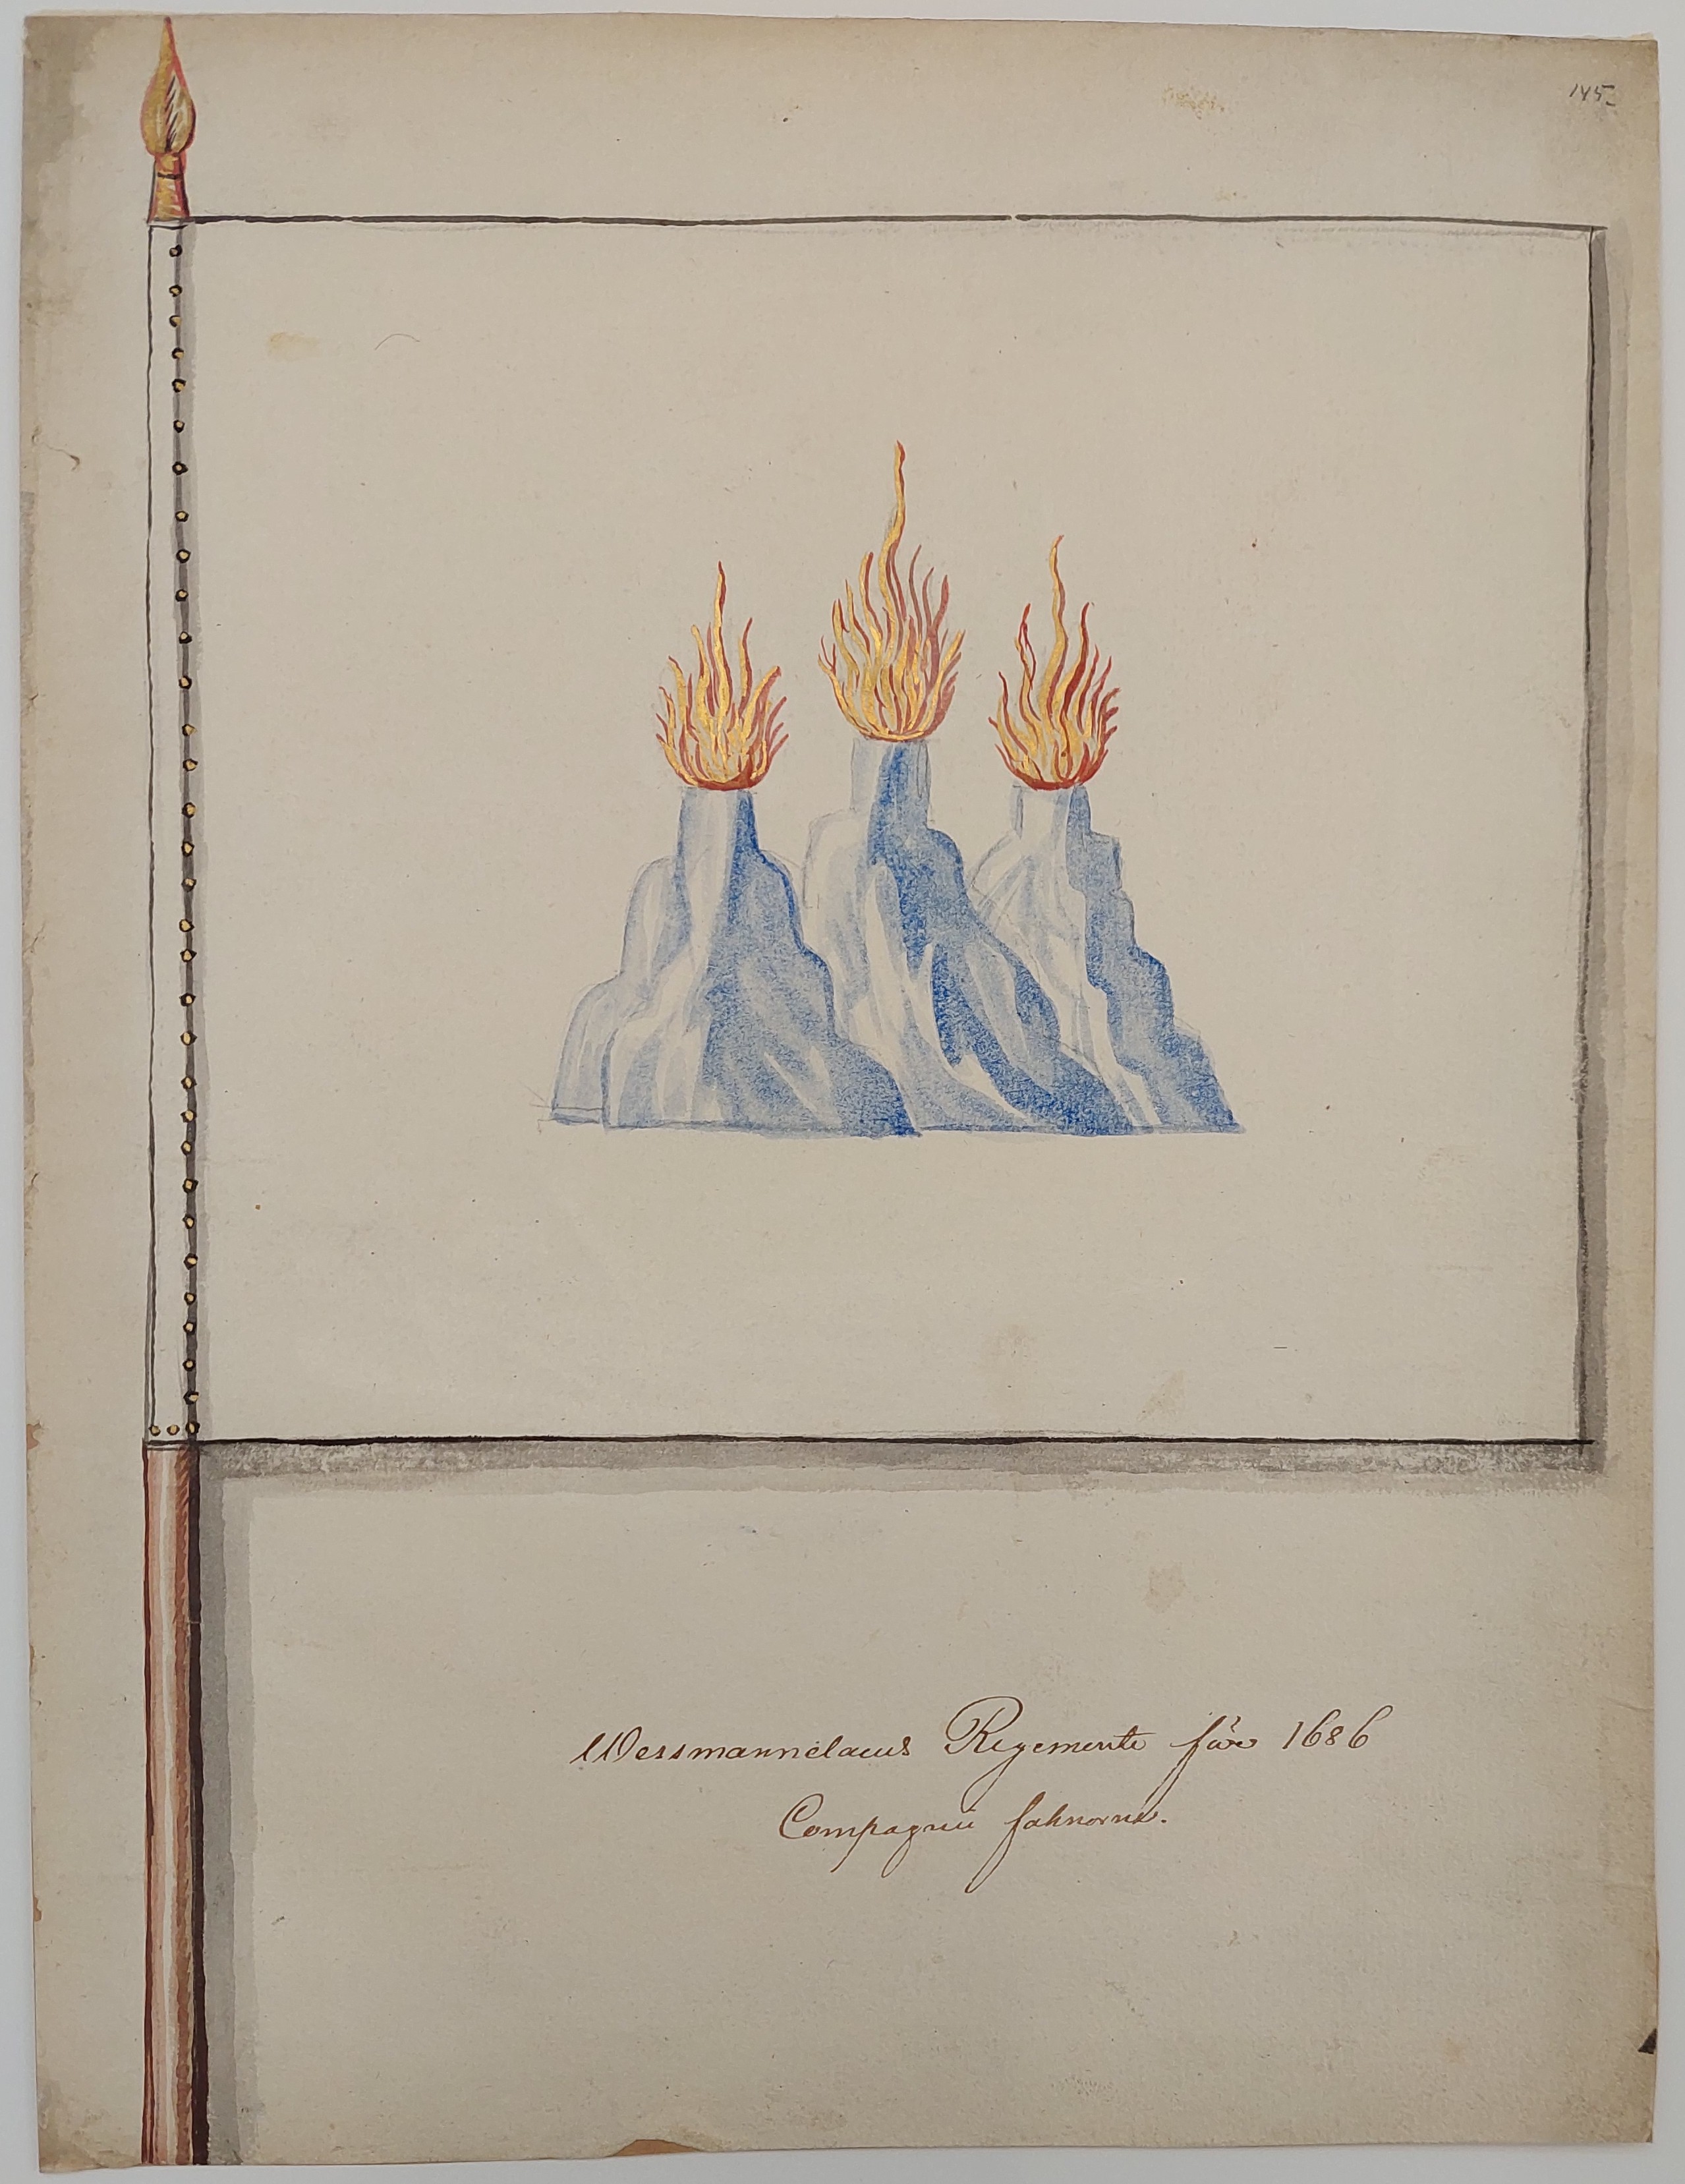 145.
Wessmannelaens Regemente för 1686
Compagnii fahnorna.